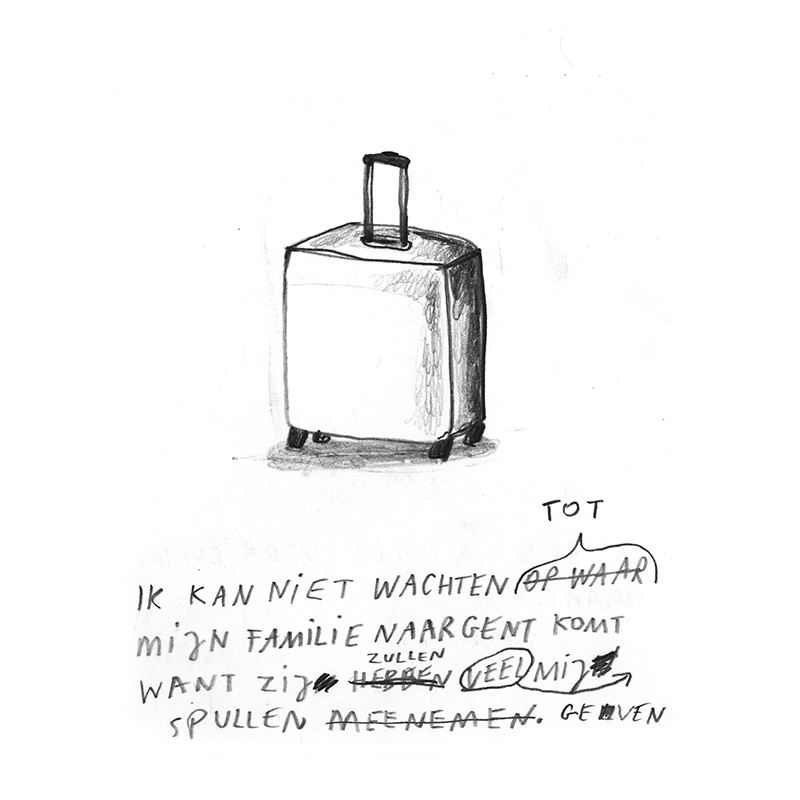 TOT
IK KAN NIET WACHTEN OP WAAR
MIJN FAMILIE NAAR GENT KOMT
ZULLEN
WANT ZIJ HEBBEN VEEL MIJ
SPULLEN MEENEMEN. GEVEN